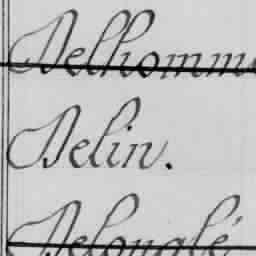 Delhomm
Delin.
Delonglé